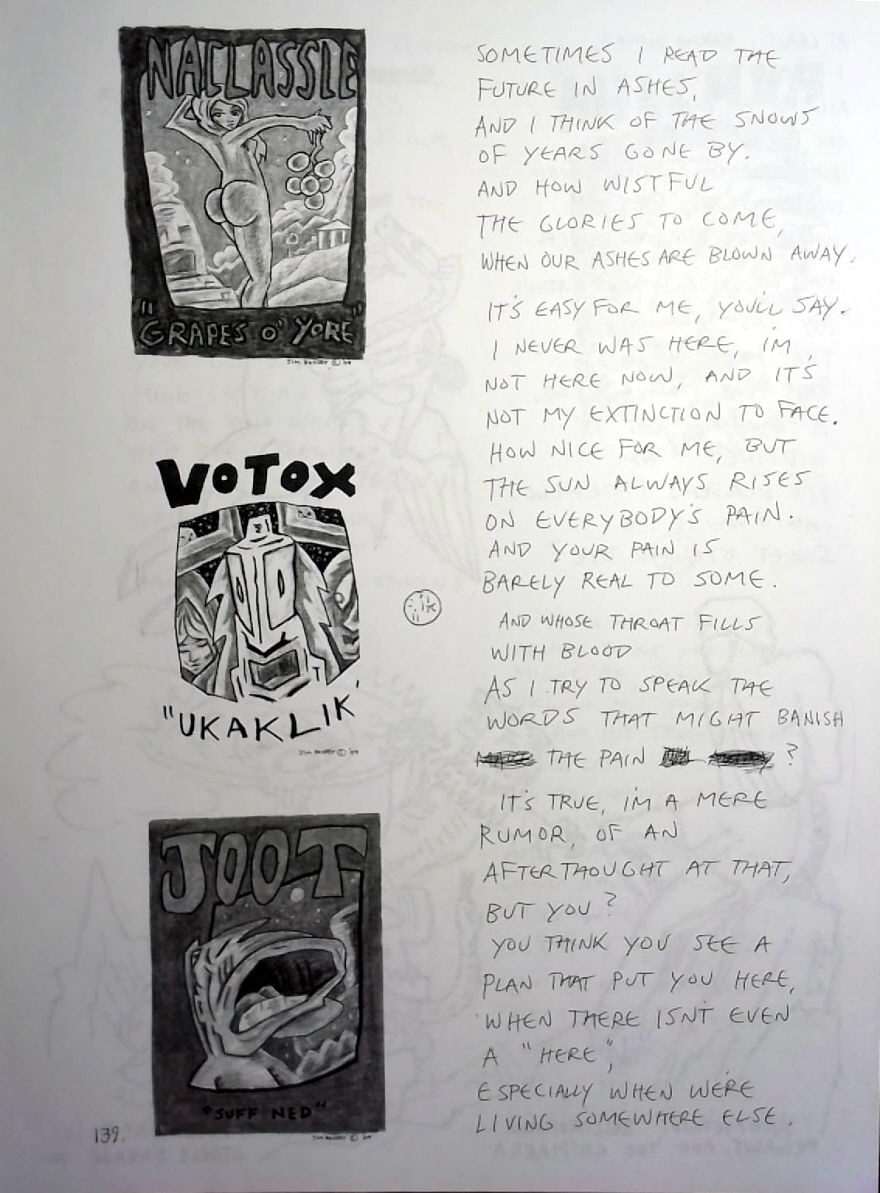 NACLASSLE
"GRAPES O' YORE"
JIM BLOSSEY © '09
VOTOX
"UKAKLIK'
JOOT
"SUFF NED"
139.
SOMETIMES I READ THE
FUTURE IN ASHES,
AND I THINK OF THE SNOWS
OF YEARS GONE BY.
AND HOW WISTFUL
THE GLORIES TO COME,
WHEN OUR ASHES ARE BLOWN AWAY.
IT'S EASY FOR ME, YOU'LL SAY.
I NEVER WAS HERE, I'M
NOT HERE NOW, AND IT'S
NOT MY EXTINCTION TO FACE.
HOW NICE FOR ME, BUT
THE SUN ALWAYS RISES
ON EVERYBODY'S PAIN.
AND YOUR PAIN IS
BARELY REAL TO SOME.
AND WHOSE THROAT FILLS
WITH BLOOD
AS I TRY TO SPEAK THE
WORDS THAT MIGHT BANISH
THE PAIN ?
IT'S TRUE, I'M A MERE
RUMOR, OF AN
AFTERTHOUGHT AT THAT,
BUT YOU?
YOU THINK YOU SEE A
PLAN THAT PUT YOU HERE,
WHEN THERE ISN'T EVEN
A "HERE",
ESPECIALLY WHEN WE'RE
LIVING SOMEWHERE ELSE.